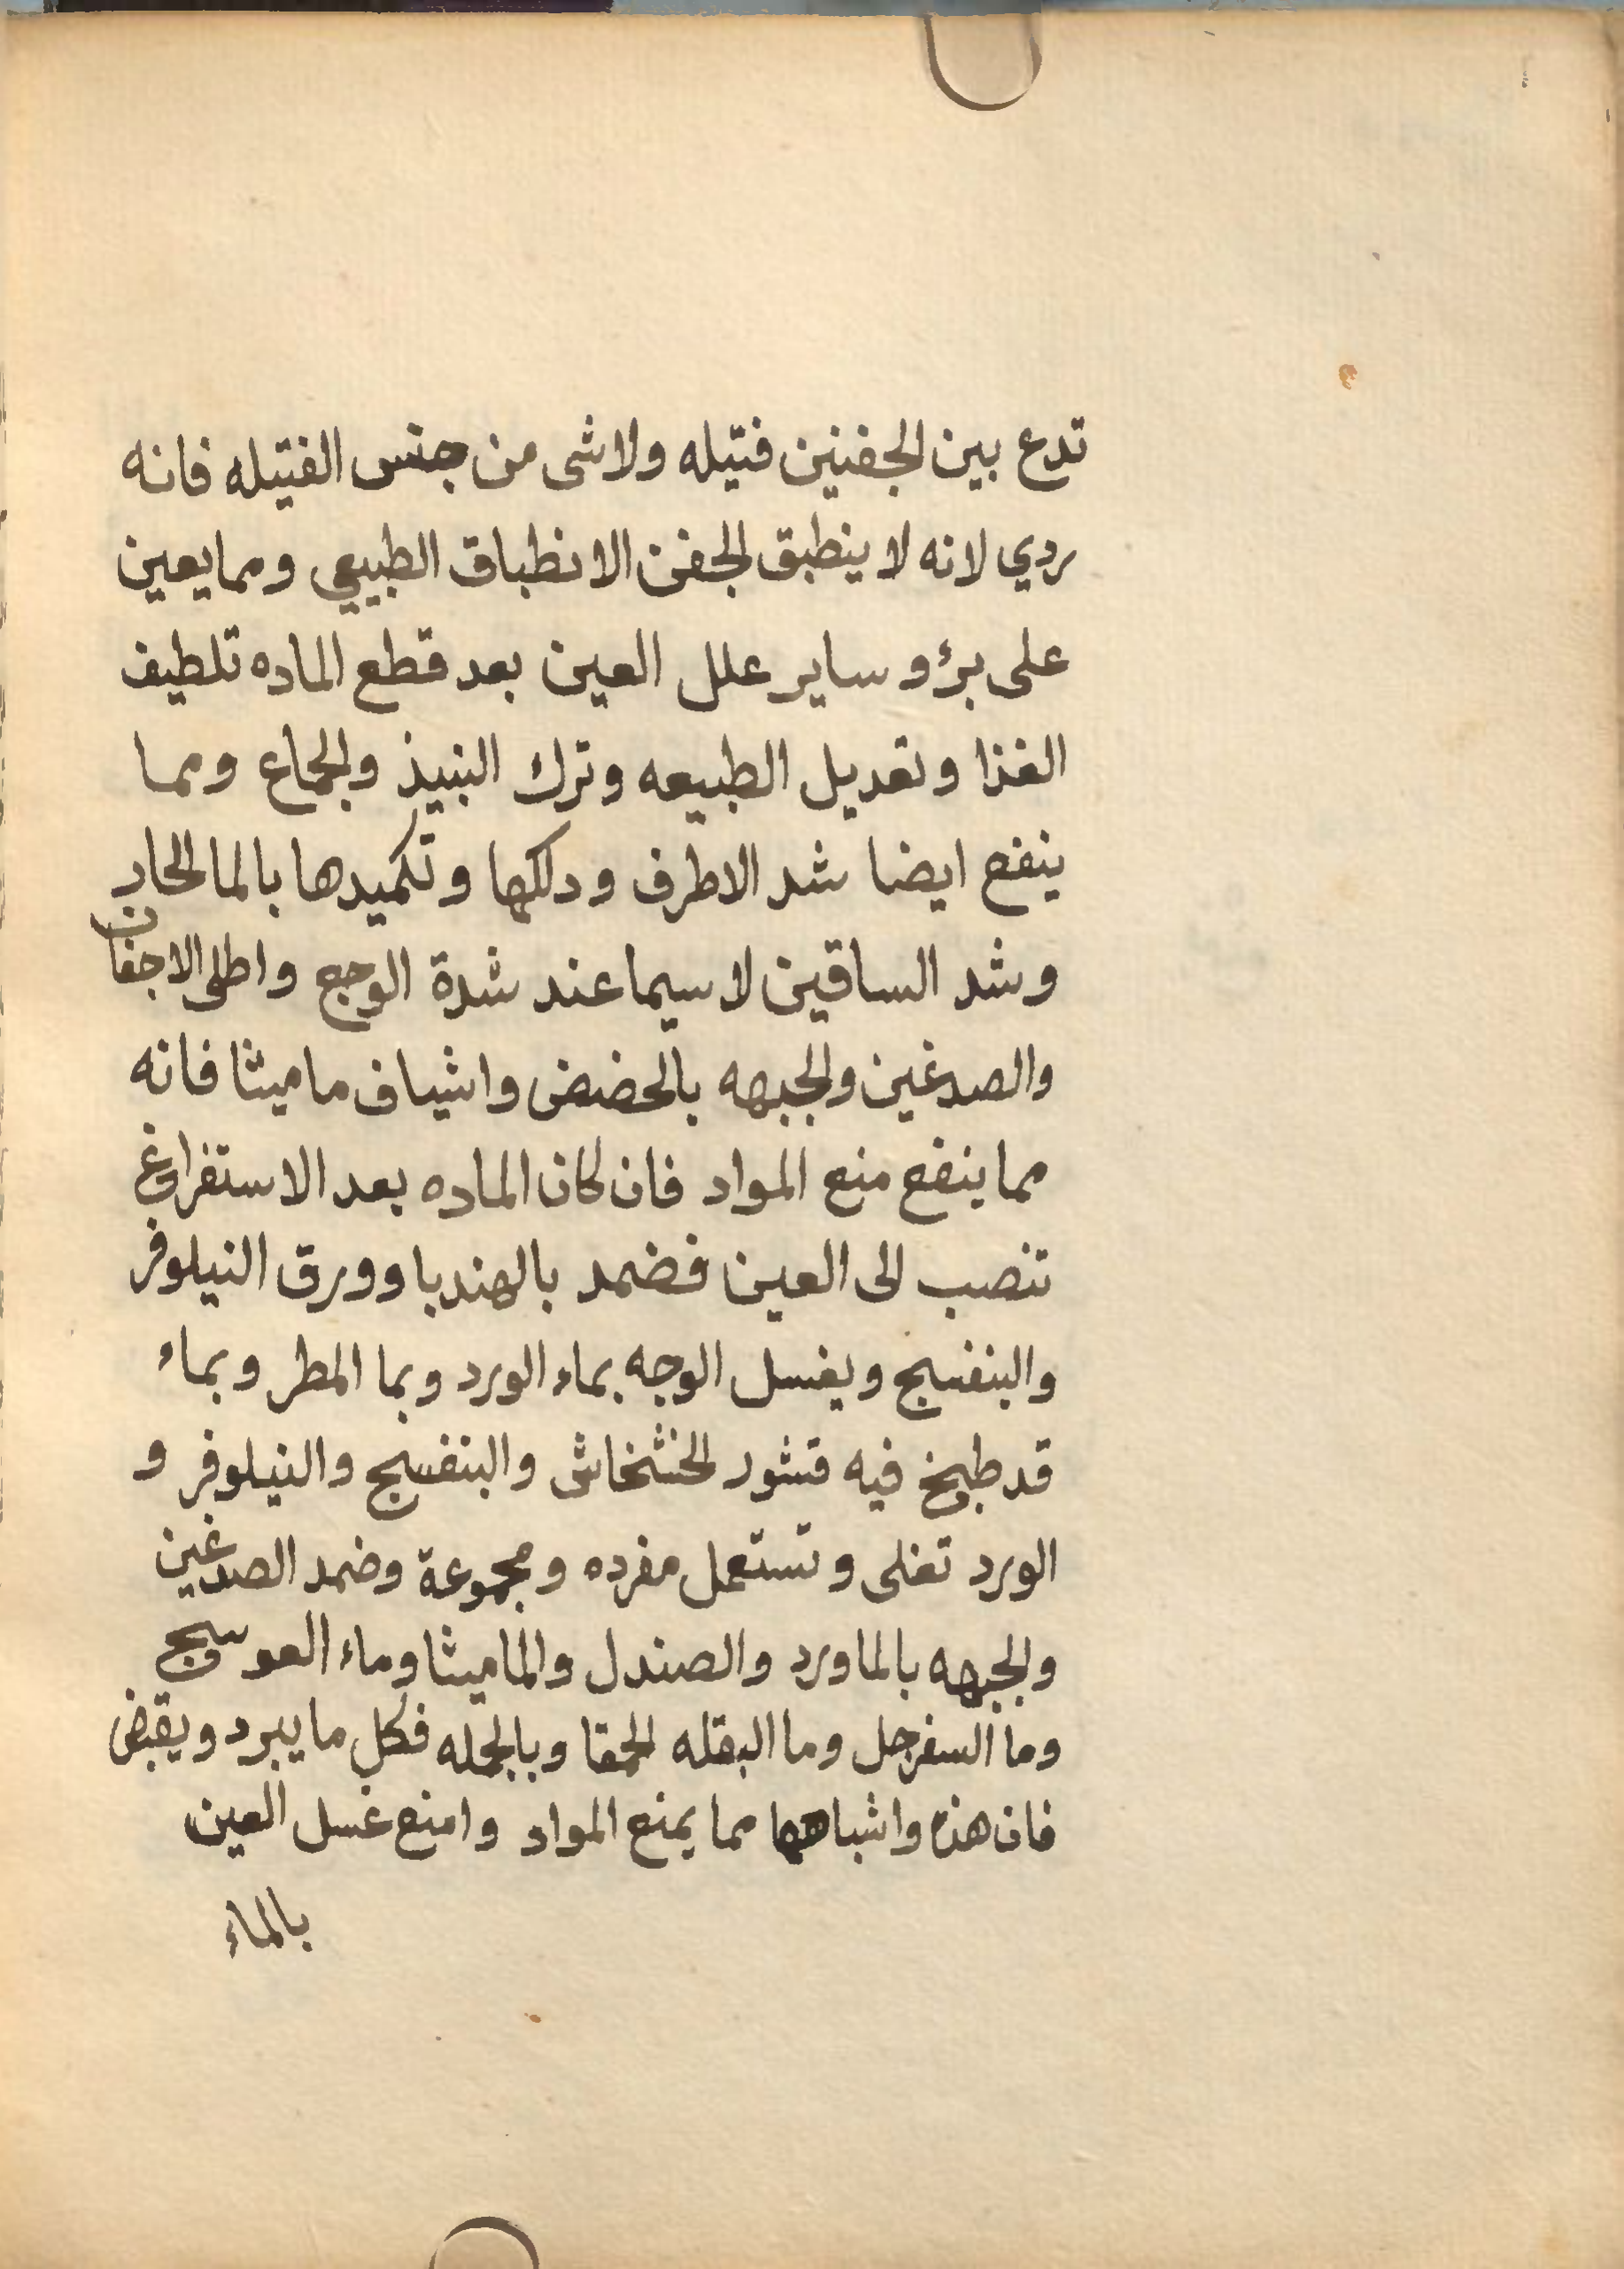 تدع بين الجفنين فتيله ولا شى من جنس الفتيله فانه
ردي لانه لا ينطبق الجفن الانطباق الطبيعي ومما يعين
على برؤ وساير علل العين بعد قطع الماده تلطيف
الغذا وتعديل الطبيعه وترك النبيذ والجماع ومما
ينفع ايضا شد الاطرف ودلكها وتكميدها بالما الحار
وشد الساقين لا سيما عند شدة الوجع واطلى الاجفان
والصدغين والجبهه بالحضض واشياف ماميثا فانه
مما ينفع منع المواد فان كان الماده بعد الاستفراغ
تنصب الى العين فضمد بالهندبا وورق النيلوفر
والبنفسج ويغسل الوجه بماء الورد وبما المطر وبماء
قد طبخ فيه قشور الخشخاش والبنفسج والنيلوفر و
الورد تغلى وتستعمل مفرده ومجموعة وضمد الصدغين
والجبهه بالماورد والصندل والماميثا وماء العوسج
وما السفرجل وما البقله الحمقا وبالجمله فكل ما يبرد ويقبض
فان هذه واشباهها مما يمنع المواد وامنع غسل العين
بالماء